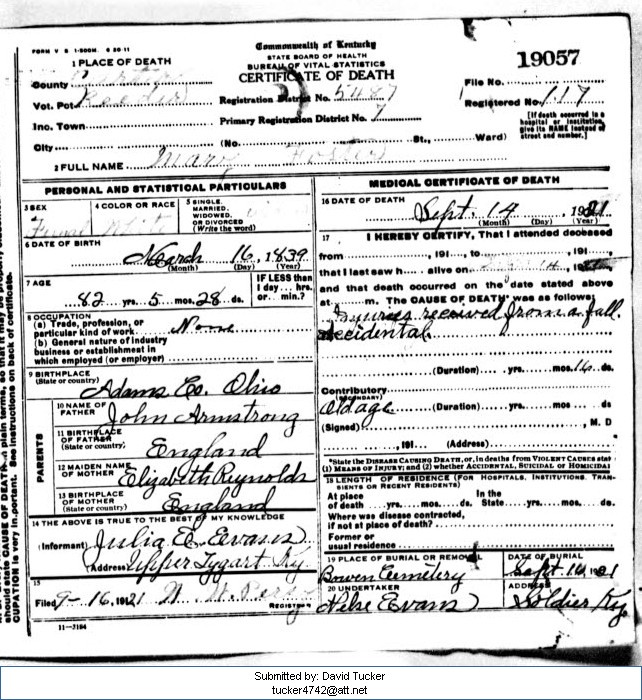 FORM V S 1-500M. 6 20 11
Commonwealth of Kentucky
STATE BOARD OF HEALTH
BUREAU OF VITAL STATISTICS
CERTIFICATE OF DEATH
19057
1 PLACE OF DEATH
County
Vot. Pct.
Inc. Town
City
Registration District No. 5487
Primary Registration District No. 7
(No. St., Ward)
File No.
Registered No. 117
[If death occurred in a
hospital or institution,
give its NAME instead of
street and number.]
2 FULL NAME Mary Foster
PERSONAL AND STATISTICAL PARTICULARS
3 SEX
Femal
4 COLOR OR RACE
White
5 SINGLE,
MARRIED,
WIDOWED,
OR DIVORCED
(Write the word)
6 DATE OF BIRTH
March 16, 1839
(Month) (Day) (Year)
7 AGE
82 yrs. 5 mos. 28 ds.
IF LESS than
1 day... hrs.
or... min.?
8 OCCUPATION
(a) Trade, profession, or
particular kind of work None
(b) General nature of industry
business or establishment in
which employed (or employer)
9 BIRTHPLACE
(State or country)
Adams Co. Ohio
PARENTS
10 NAME OF
FATHER John Armstrong
11 BIRTHPLACE
OF FATHER
(State or country)
England
12 MAIDEN NAME
OF MOTHER Elizabeth Reynolds
13 BIRTHPLACE
OF MOTHER
(State or country)
England
14 THE ABOVE IS TRUE TO THE BEST OF MY KNOWLEDGE
(Informant) Julia E. Evans
(Address) Upper Tygart Ky.
15
Filed 9-16, 1921
REGISTRAR
11-3184
MEDICAL CERTIFICATE OF DEATH
16 DATE OF DEATH
Sept. 14, 1921
(Month) (Day) (Year)
17 I HEREBY CERTIFY, That I attended deceased
from, 191..., to, 191
that I last saw h... alive on 14
and that death occurred on the date stated above
at m. The CAUSE OF DEATH* was as follows:
Injuries received from a fall.
accidental.
(Duration) yrs. mos. 16 ds
Contributory
(SECONDARY)
Old age (Duration) yrs. mos ds
(Signed), M. D
, 191... (Address)
*State the DISEASE CAUSING DEATH, or, in deaths from VIOLENT CAUSES state
(1) MEANS OF INJURY; and (2) whether ACCIDENTAL, SUICIDAL or HOMICIDAL
18 LENGTH OF RESIDENCE (FOR HOSPITALS, INSTITUTIONS, TRAN-
SIENTS OR RECENT RESIDENTS)
At place
of death yrs. mos. ds.
In the
State yrs. mos. ds.
Where was disease contracted,
if not at place of death?
Former or
usual residence
19 PLACE OF BURIAL OR REMOVAL
Bowen Cemetery
DATE OF BURIAL
Sept 16, 1921
20 UNDERTAKER
Nelse Evans
ADDRESS
Soldier Ky.
should state CAUSE OF DEATH in plain terms, so that it may be properly classified
CUPATION is very important. See instructions on back of certificate.
Submitted by: David Tucker
tucker4742@att.net